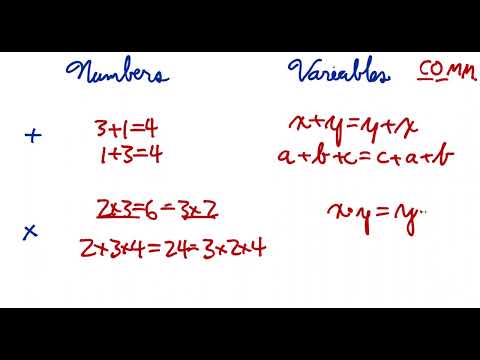 Numbers Variables COMM
+ 3+1=4 x+y=y+x
1+3=4 a+b+c=c+a+b
× 2×3=6=3×2 x·y=y·
2×3×4=24=3×2×4